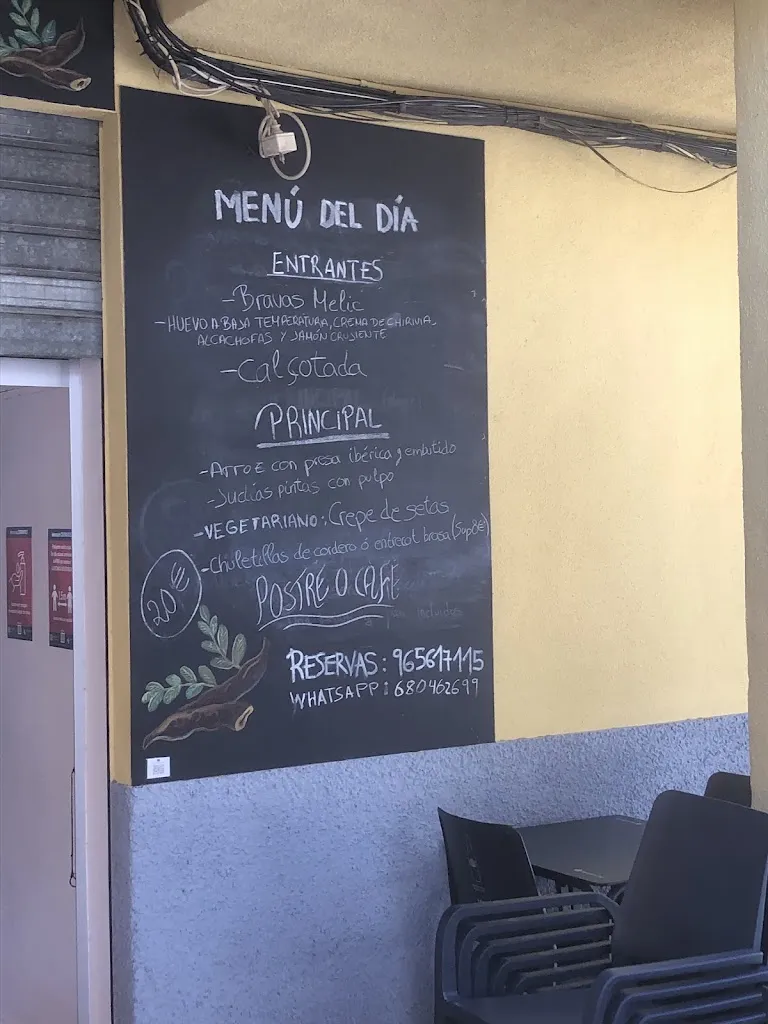 MENÚ DEL DÍA
ENTRANTES
-Bravas Melic
-HUEVO A BAJA TEMPERATURA, CREMA DE CHIRIVIA,
ALCACHOFAS Y JAMÓN CRUJIENTE
-Calçotada
PRINCIPAL
-Arroz con presa ibérica y embutido
-Judias pintas con pulpo
-VEGETARIANO: Crepe de setas
-Chuletillas de cordero ó entrecot brasa (Sup 8€)
20€
POSTRE O CAFÉ
pan incluidos
RESERVAS: 965617115
WHATSAPP: 680462699